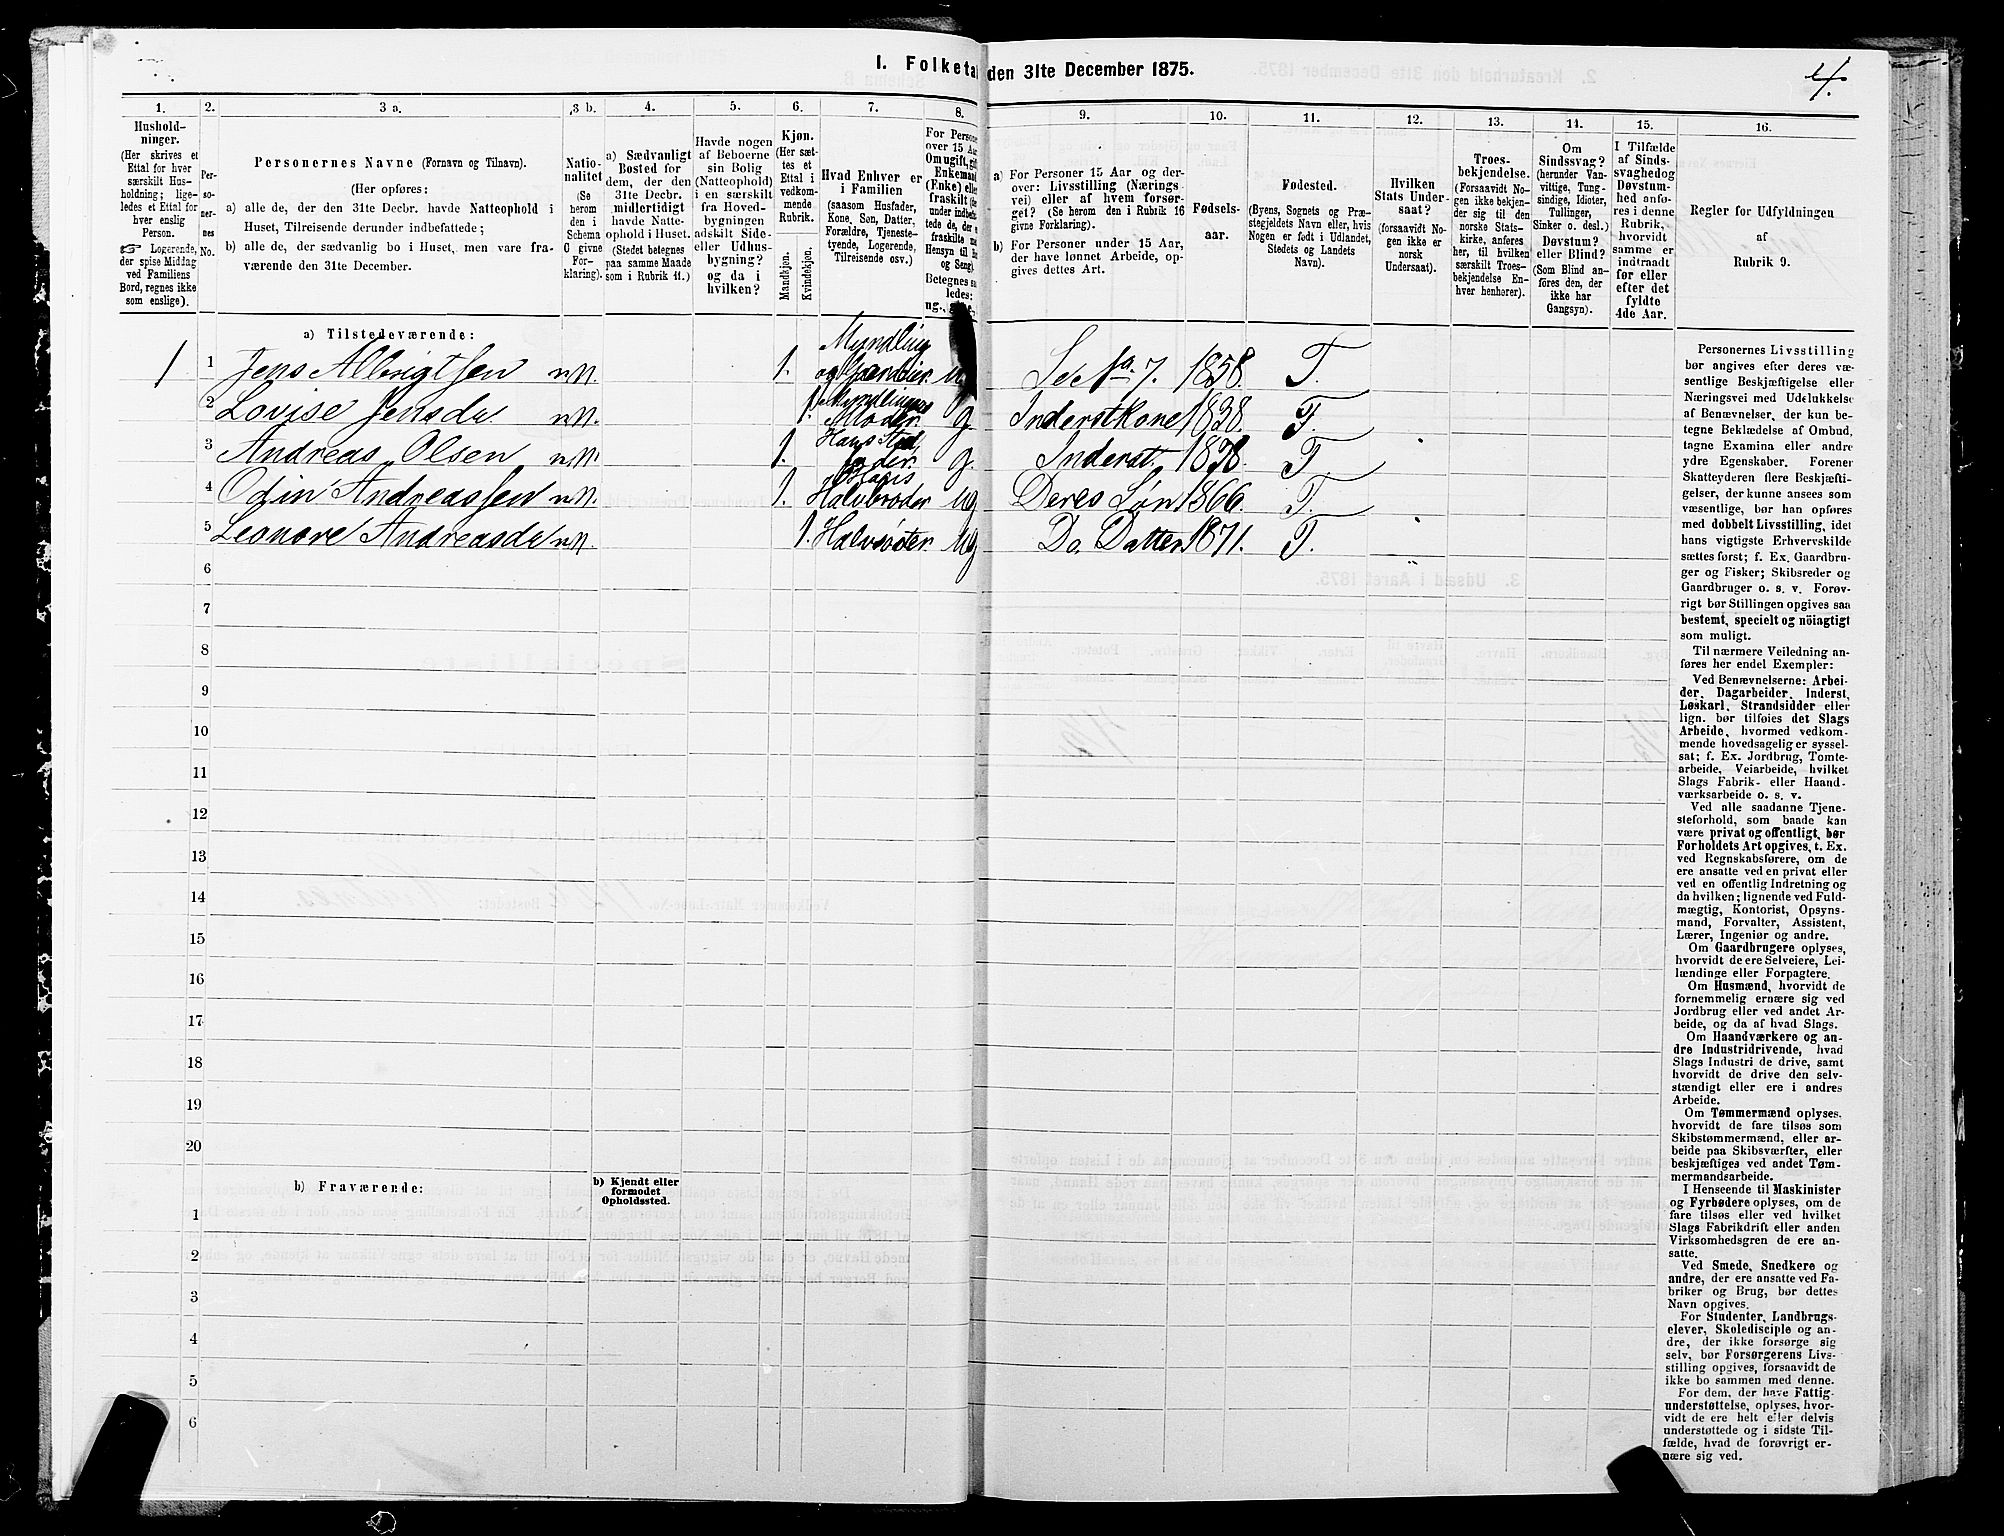 I. Folketal den 31te December 1875.
4.
1. 2. 3 a. 3 b. 4. 5. 6. 7. 8. 9. 10. 11. 12. 13. 14. 15. 16.
Hushold-
ninger.
(Her skrives et
Ettal for hver
særskilt Hus-
holdning; lige-
ledes et Ettal for
hver enslig
Person.
☞ Logerende,
der spise Middag
ved Familiens
Bord, regnes ikke
som enslige).
Per-
so-
ner-
nes
No.
Personernes Navne (Fornavn og Tilnavn).
(Her opføres:
a) alle de, der den 31te Decbr. havde Natteophold i
Huset, Tilreisende derunder indbefattede;
b) alle de, der sædvanlig bo i Huset, men vare fra-
værende den 31te December.
Natio-
nalitet
(Se
herom
den i
Schema
C givne
For-
klaring).
a) Sædvanligt
Bosted for
dem, der den
31te Decbr.
midlertidigt
havde Natte-
ophold i Huset.
(Stedet betegnes
paa samme Maade
som i Rubrik 11.)
Havde nogen
af Beboerne
sin Bolig
(Natteophold)
i en særskilt
fra Hoved-
bygningen
adskilt Side-
eller Udhus-
bygning?
og da i
hvilken?
Kjøn.
(Her sæt-
tes et
Ettal i
vedkom-
mende
Rubrik.
Mandkjøn.
Kvindekjøn.
Hvad Enhver er
i Familien
(saasom Husfader,
Kone, Søn, Datter,
Forældre, Tjeneste-
tyende, Logerende,
Tilreisende osv.)
For Person
over 15 Aar
Om ugift, gift
Enkemand
(Enke) eller
fraskilt
Betegnes
ledes:
a) For Personer 15 Aar og der-
over: Livsstilling (Nærings-
vei) eller af hvem forsør-
get? (Se herom den i Rubrik 16
givne Forklaring).
b) For Personer under 15 Aar,
der have lønnet Arbeide, op-
gives dettes Art.
Fødsels-
aar.
Fødested.
(Byens, Sognets og Præ-
stegjeldets Navn eller, hvis
Nogen er født i Udlandet,
Stedets og Landets
Navn).
Hvilken
Stats Under-
saat?
(forsaavidt No-
gen ikke er
norsk
Undersaat).
Troes-
bekjendelse.
(Forsaavidt No-
gen ikke bekjen-
der sig til den
norske Stats-
kirke, anføres
her, til hvilken
særskilt Troes-
bekjendelse En-
hver henhører).
Om
Sindssvag?
(herunder Van-
vittige, Tung-
sindige, Idioter,
Tullinger,
Sinker o. desl.)
Døvstum?
eller Blind?
(Som Blind an-
føres den, der
ikke har
Gangsyn).
I Tilfælde
af Sinds-
svaghed og
Døvstum-
hed anfø-
res i denne
Rubrik,
hvorvidt
samme er
indtraadt
før eller
efter det
fyldte
4de Aar.
Regler for Udfyldningen
af
Rubrik 9.
a) Tilstedeværende:
1 1 Jens Albrigtsen n.N. 1. Myndling og Gardbr. ug Se No 7. 1858. T.
2 Lovise Jensda n.N. 1. Myndlingens Moder. g. Inderstkone 1838. T.
3 Andreas Olsen n.N. 1. Hans Sted fader. g. Inderst. 1838. T.
4 Odin Andreassen n.N. 1. Hans Halvbroder ug Deres Søn 1866. T.
5 Leonore Andreasda n.N. 1. Halvsøster. ug Do. Datter 1871. T.
6
7
8
9
10
11
12
13
14
15
16
17
18
19
20
b) Fraværende:
b) Kjendt eller
formodet
Opholdssted.
1
2
3
4
5
6
Personernes Livsstilling
bør angives efter deres væ-
sentlige Beskjæftigelse eller
Næringsvei med Udelukkelse
af Benævnelser, der kun be-
tegne Beklædelse af Ombud,
tagne Examina eller andre
ydre Egenskaber. Forener
Skatteyderen flere Beskjæfti-
gelser, der kunne ansees som
væsentlige, bør han opføres
med dobbelt Livsstilling, idet
hans vigtigste Erhvervskilde
sættes først; f. Ex. Gaardbru-
ger og Fisker; Skibsreder og
Gaardbruger o. s. v. Forøv-
rigt bør Stillingen opgives saa
bestemt, specielt og nöiagtigt
som muligt.
Til nærmere Veiledning an-
føres her endel Exempler:
Ved Benævnelserne: Arbei-
der, Dagarbeider, Inderst,
Løskarl, Strandsidder eller
lign. bør tilføies det Slags
Arbeide, hvormed vedkom-
mende hovedsagelig er syssel-
sat; f. Ex. Jordbrug, Tomte-
arbeide, Veiarbeide, hvilket
Slags Fabrik- eller Haand-
værksarbeide o. s. v.
Ved alle saadanne Tjene-
steforhold, som baade kan
være privat og offentligt, bør
Forholdets Art opgives, t. Ex.
ved Regnskabsførere, om de
ere ansatte ved en privat eller
ved en offentlig Indretning og
da hvilken; lignende ved Fuld-
mægtig, Kontorist, Opsyns-
mand, Forvalter, Assistent,
Lærer, Ingeniør og andre.
Om Gaardbrugere oplyses,
hvorvidt de ere Selveiere, Lei-
lændinge eller Forpagtere.
Om Husmænd, hvorvidt de
fornemmelig ernære sig ved
Jordbrug eller ved andet Ar-
beide, og da af hvad Slags.
Om Haandværkere og an-
dre Industridrivende, hvad
Slags Industri de drive, samt
hvorvidt de drive den selv-
stændigt eller ere i andres
Arbeide.
Om Tømmermænd oplyses,
hvorvidt de fare tilsøs som
Skibstømmermænd, eller ar-
beide paa Skibsværfter, eller
beskjæftiges ved andet Tøm-
mermandsarbeide.
I Henseende til Maskinister
og Fyrbødere oplyses, om de
fare tilsøs eller ved hvilket
Slags Fabrikdrift eller anden
Virksomhedsgren de ere an-
satte.
Ved Smede, Snedkere og
andre, der ere ansatte ved Fa-
briker og Brug, bør dettes
Navn opgives.
For Studenter, Landbrugs-
elever, Skoledisciple og an-
dre, der ikke forsørge sig
selv, bør Forsørgerens Livs-
stilling opgives, forsaavidt de
ikke bo sammen med denne.
For dem, der have Fattig-
understøttelse, oplyses, hvor-
vidt de ere helt eller delvis
understøttede og i sidste Til-
fælde, hvad de forøvrigt er-
nære sig ved.